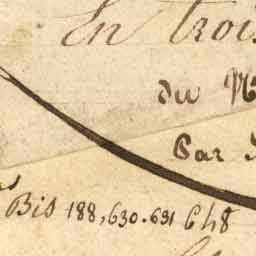 En trois
du
Par
Bis 188,630.631 Ch8